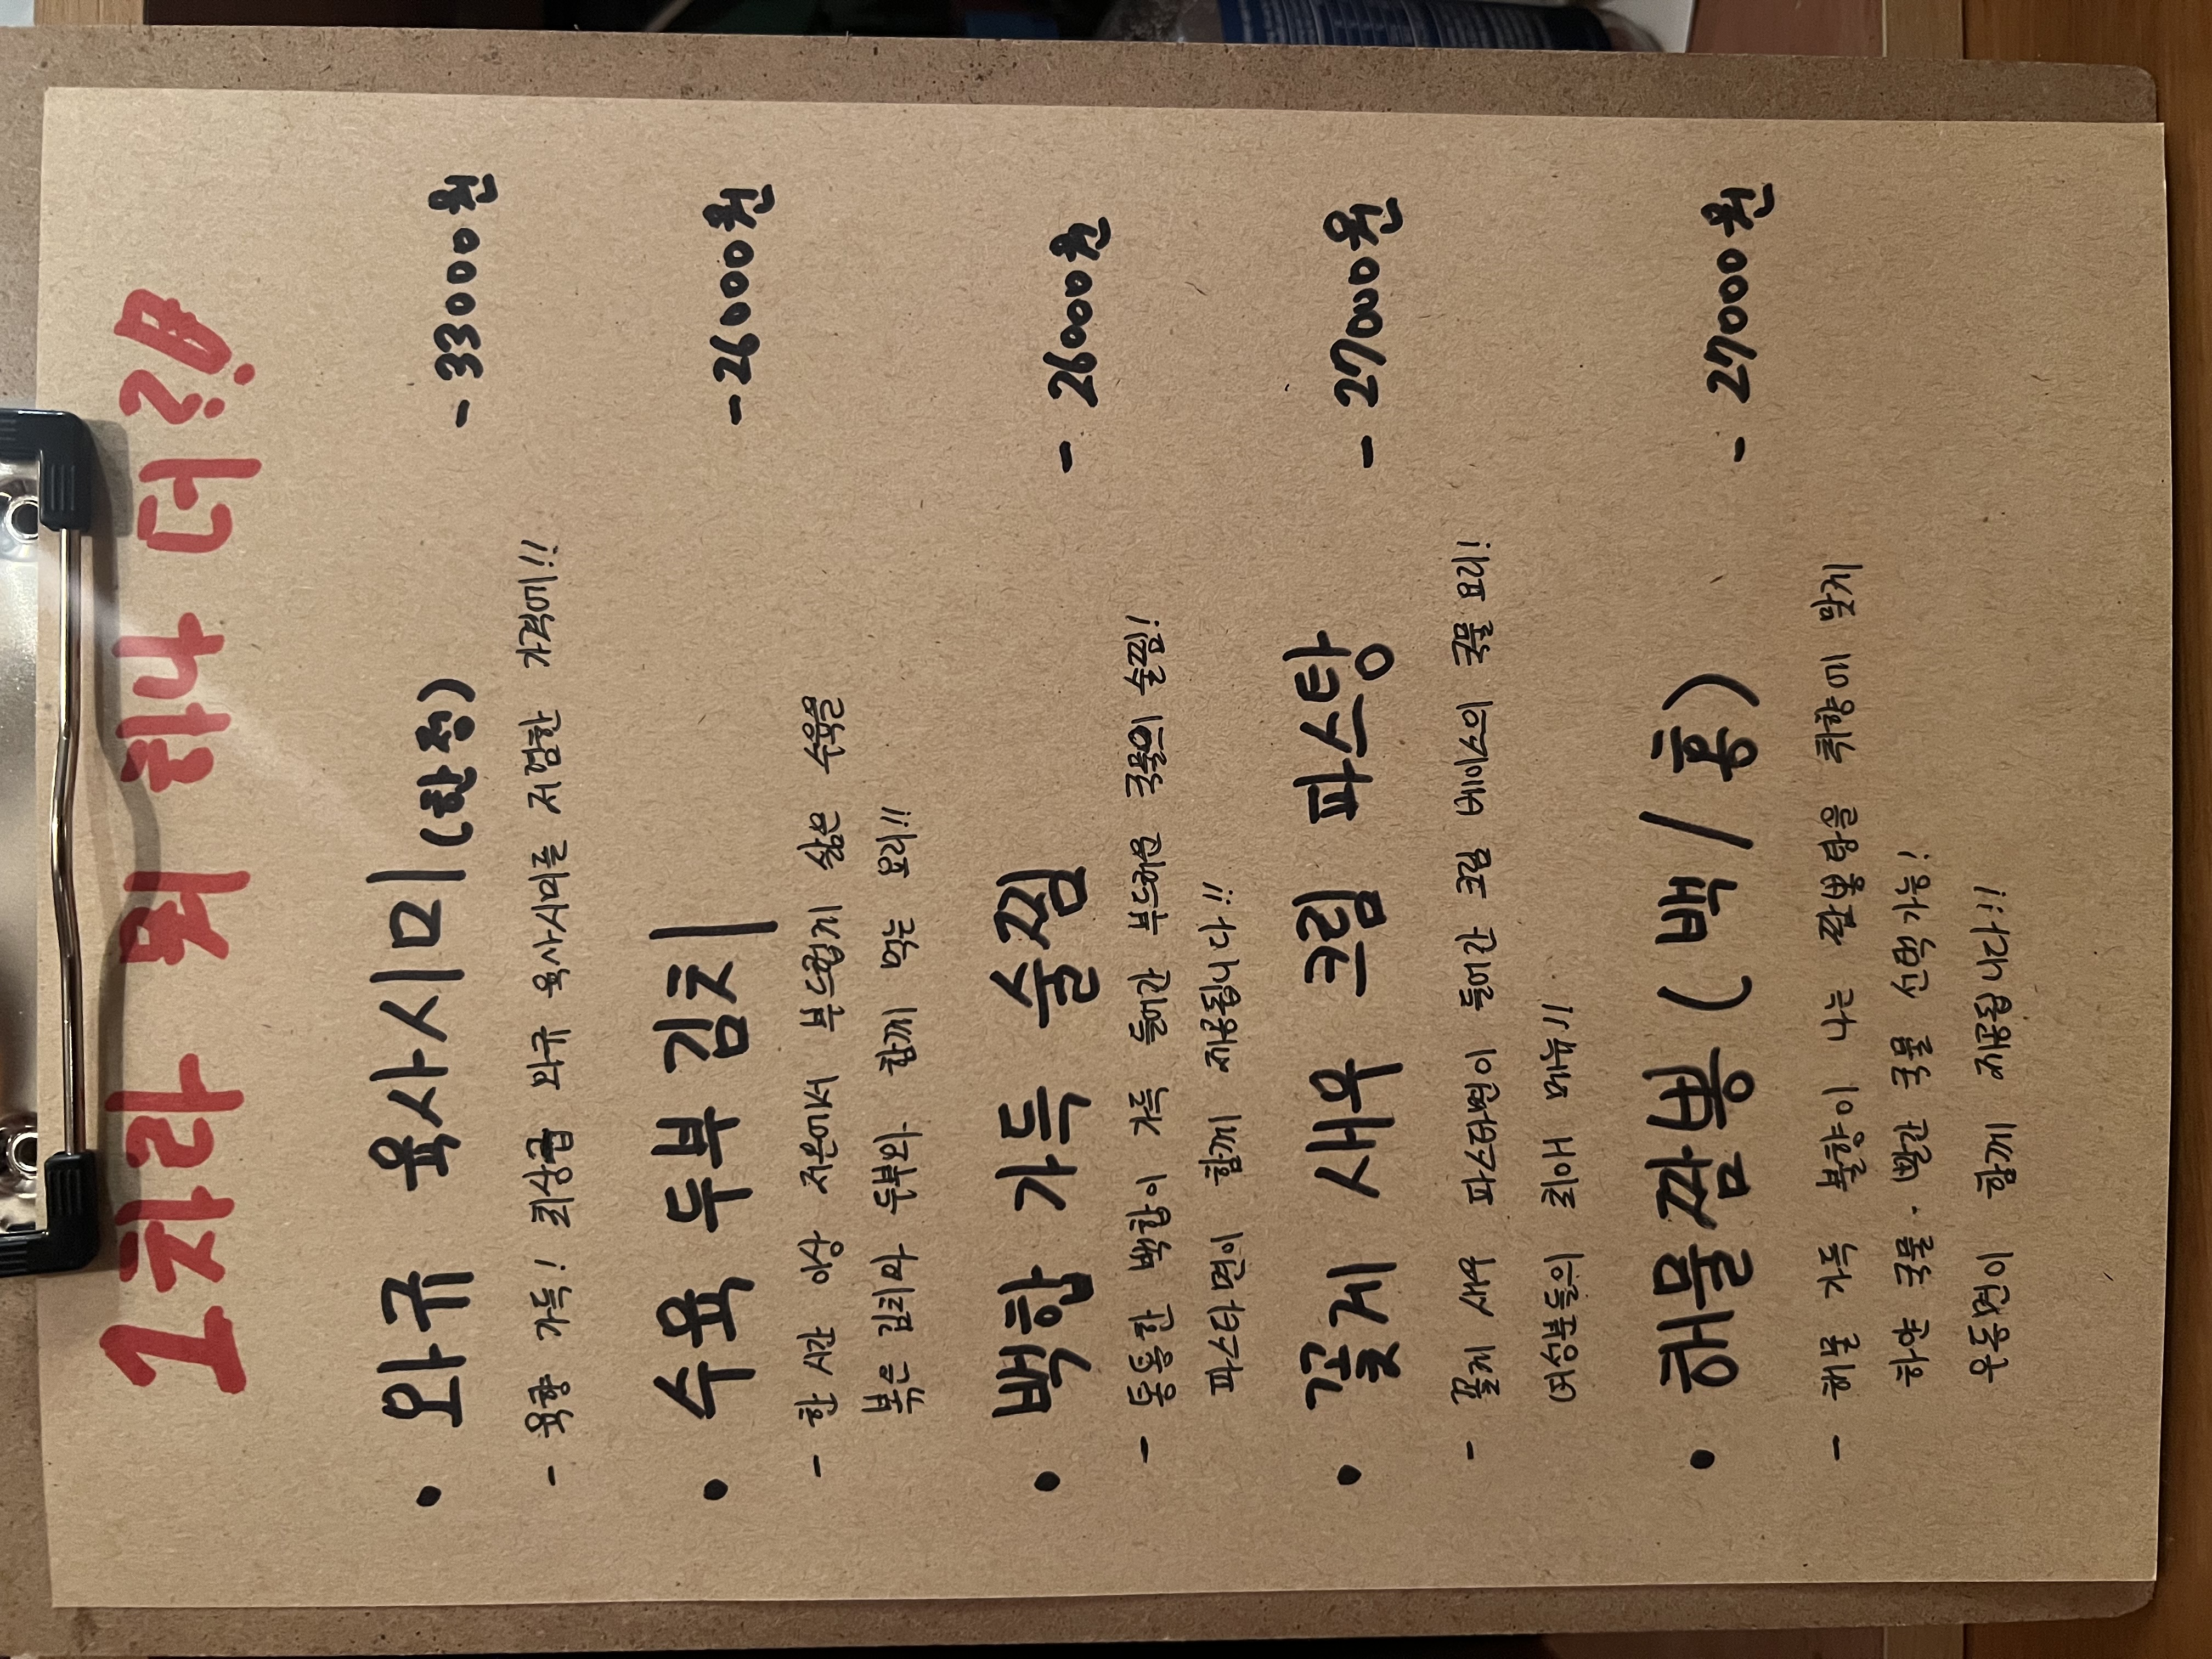 1차라 뭐 하나 더?!
• 와규 육사시미(한정) - 33000원
- 육향 가득! 최상급 와규 육사시미를 저렴한 가격에!!
• 수육 두부 김치 - 26000원
- 한 시간 이상 저온에서 부드럽게 삶은 수육을
볶은 김치와 두부와 함께 먹는 요리!!
• 백합 가득 술찜 - 26000원
- 통통한 백합이 가득 들어간 부드러운 국물의 술찜!
파스타면이 함께 제공됩니다!!
• 꽃게 새우 크림 파스탕 - 27000원
- 꽃게 새우 파스타면이 들어간 크림 베이스의 국물 요리!
여성분들의 최애 메뉴!!
• 해물짬뽕 (백/홍) - 27000원
- 해물 가득 불향이 나는 짬뽕탕을 취향에 맞게
하얀 국물·빨간 국물 선택가능!
우동면이 함께 제공됩니다!!